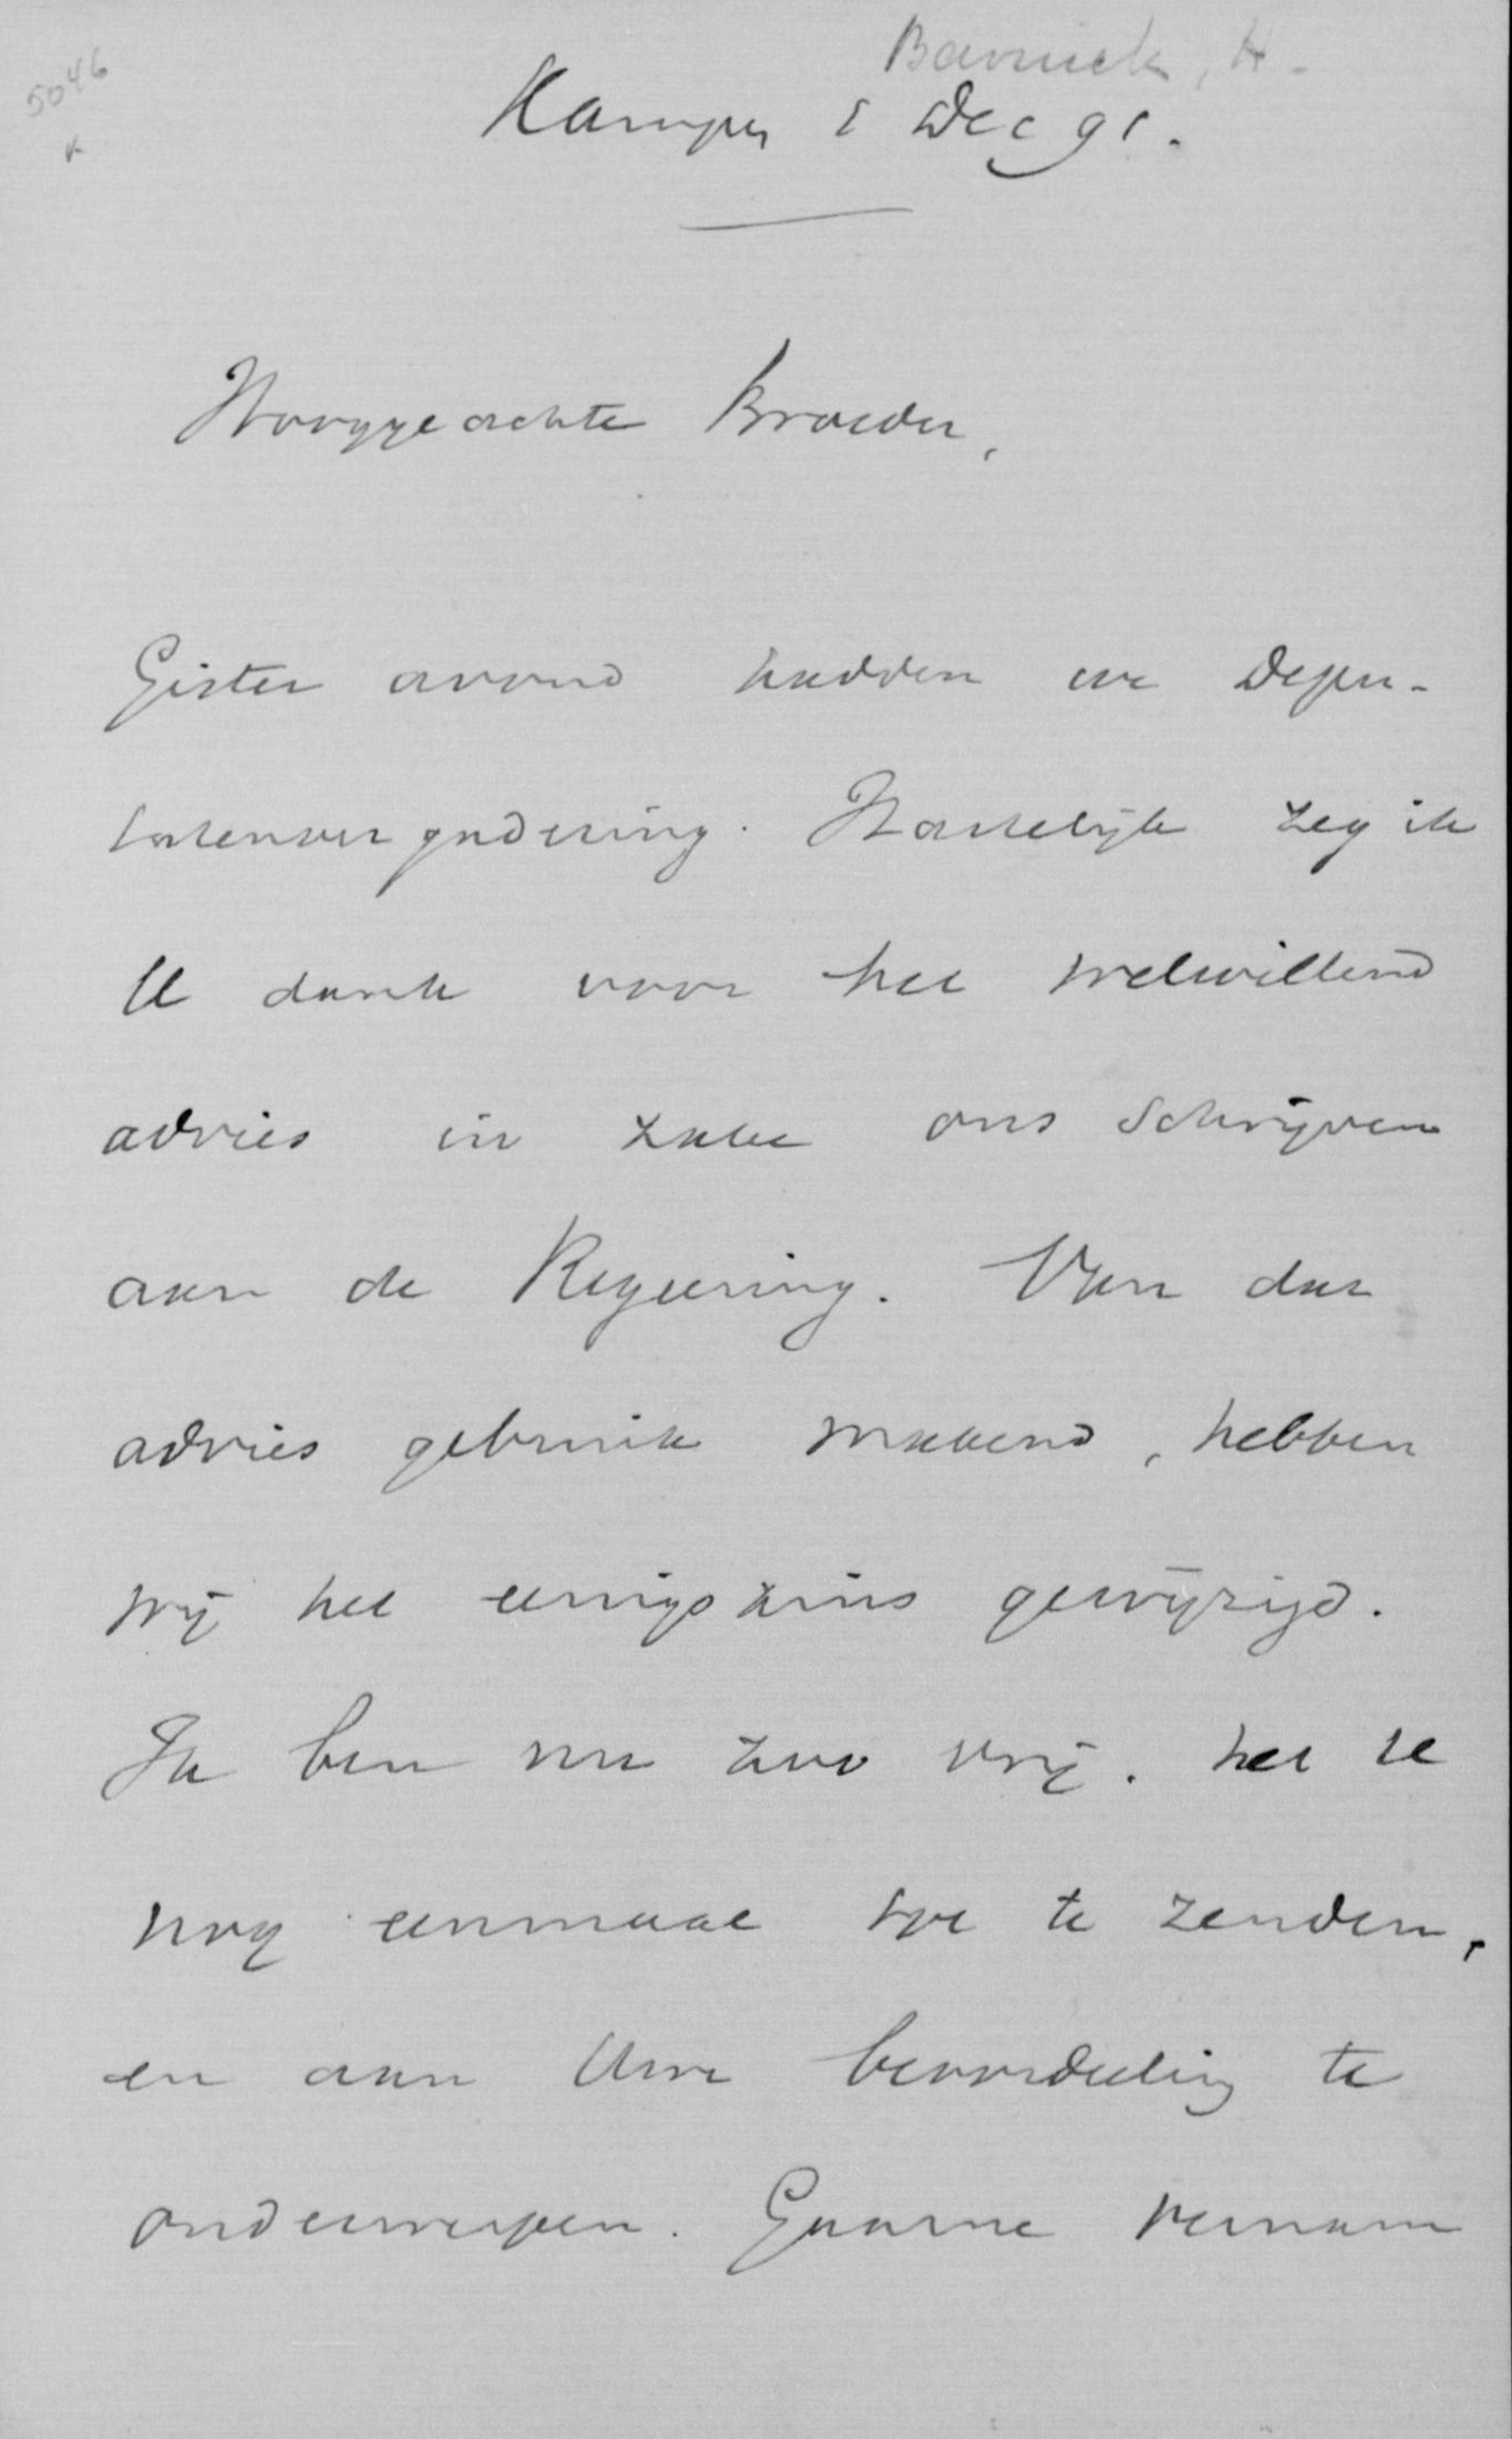 5046
Bavinck, H.
Kampen 5 Dec 91.
Hooggeachte Broeder,
Gister avond hadden we Depu-
tatenvergadering. Hartelijk zeg ik
U dank voor het welwillend
advies in zake ons schrijven
aan de Regeering. Van dat
advies gebruik makend, hebben
wij het eenigszins gewijzigd.
Ik ben nu zoo vrij. het U
nog eenmaal toe te zenden,
en aan Uwe beoordeeling te
onderwerpen. Gaarne vernam